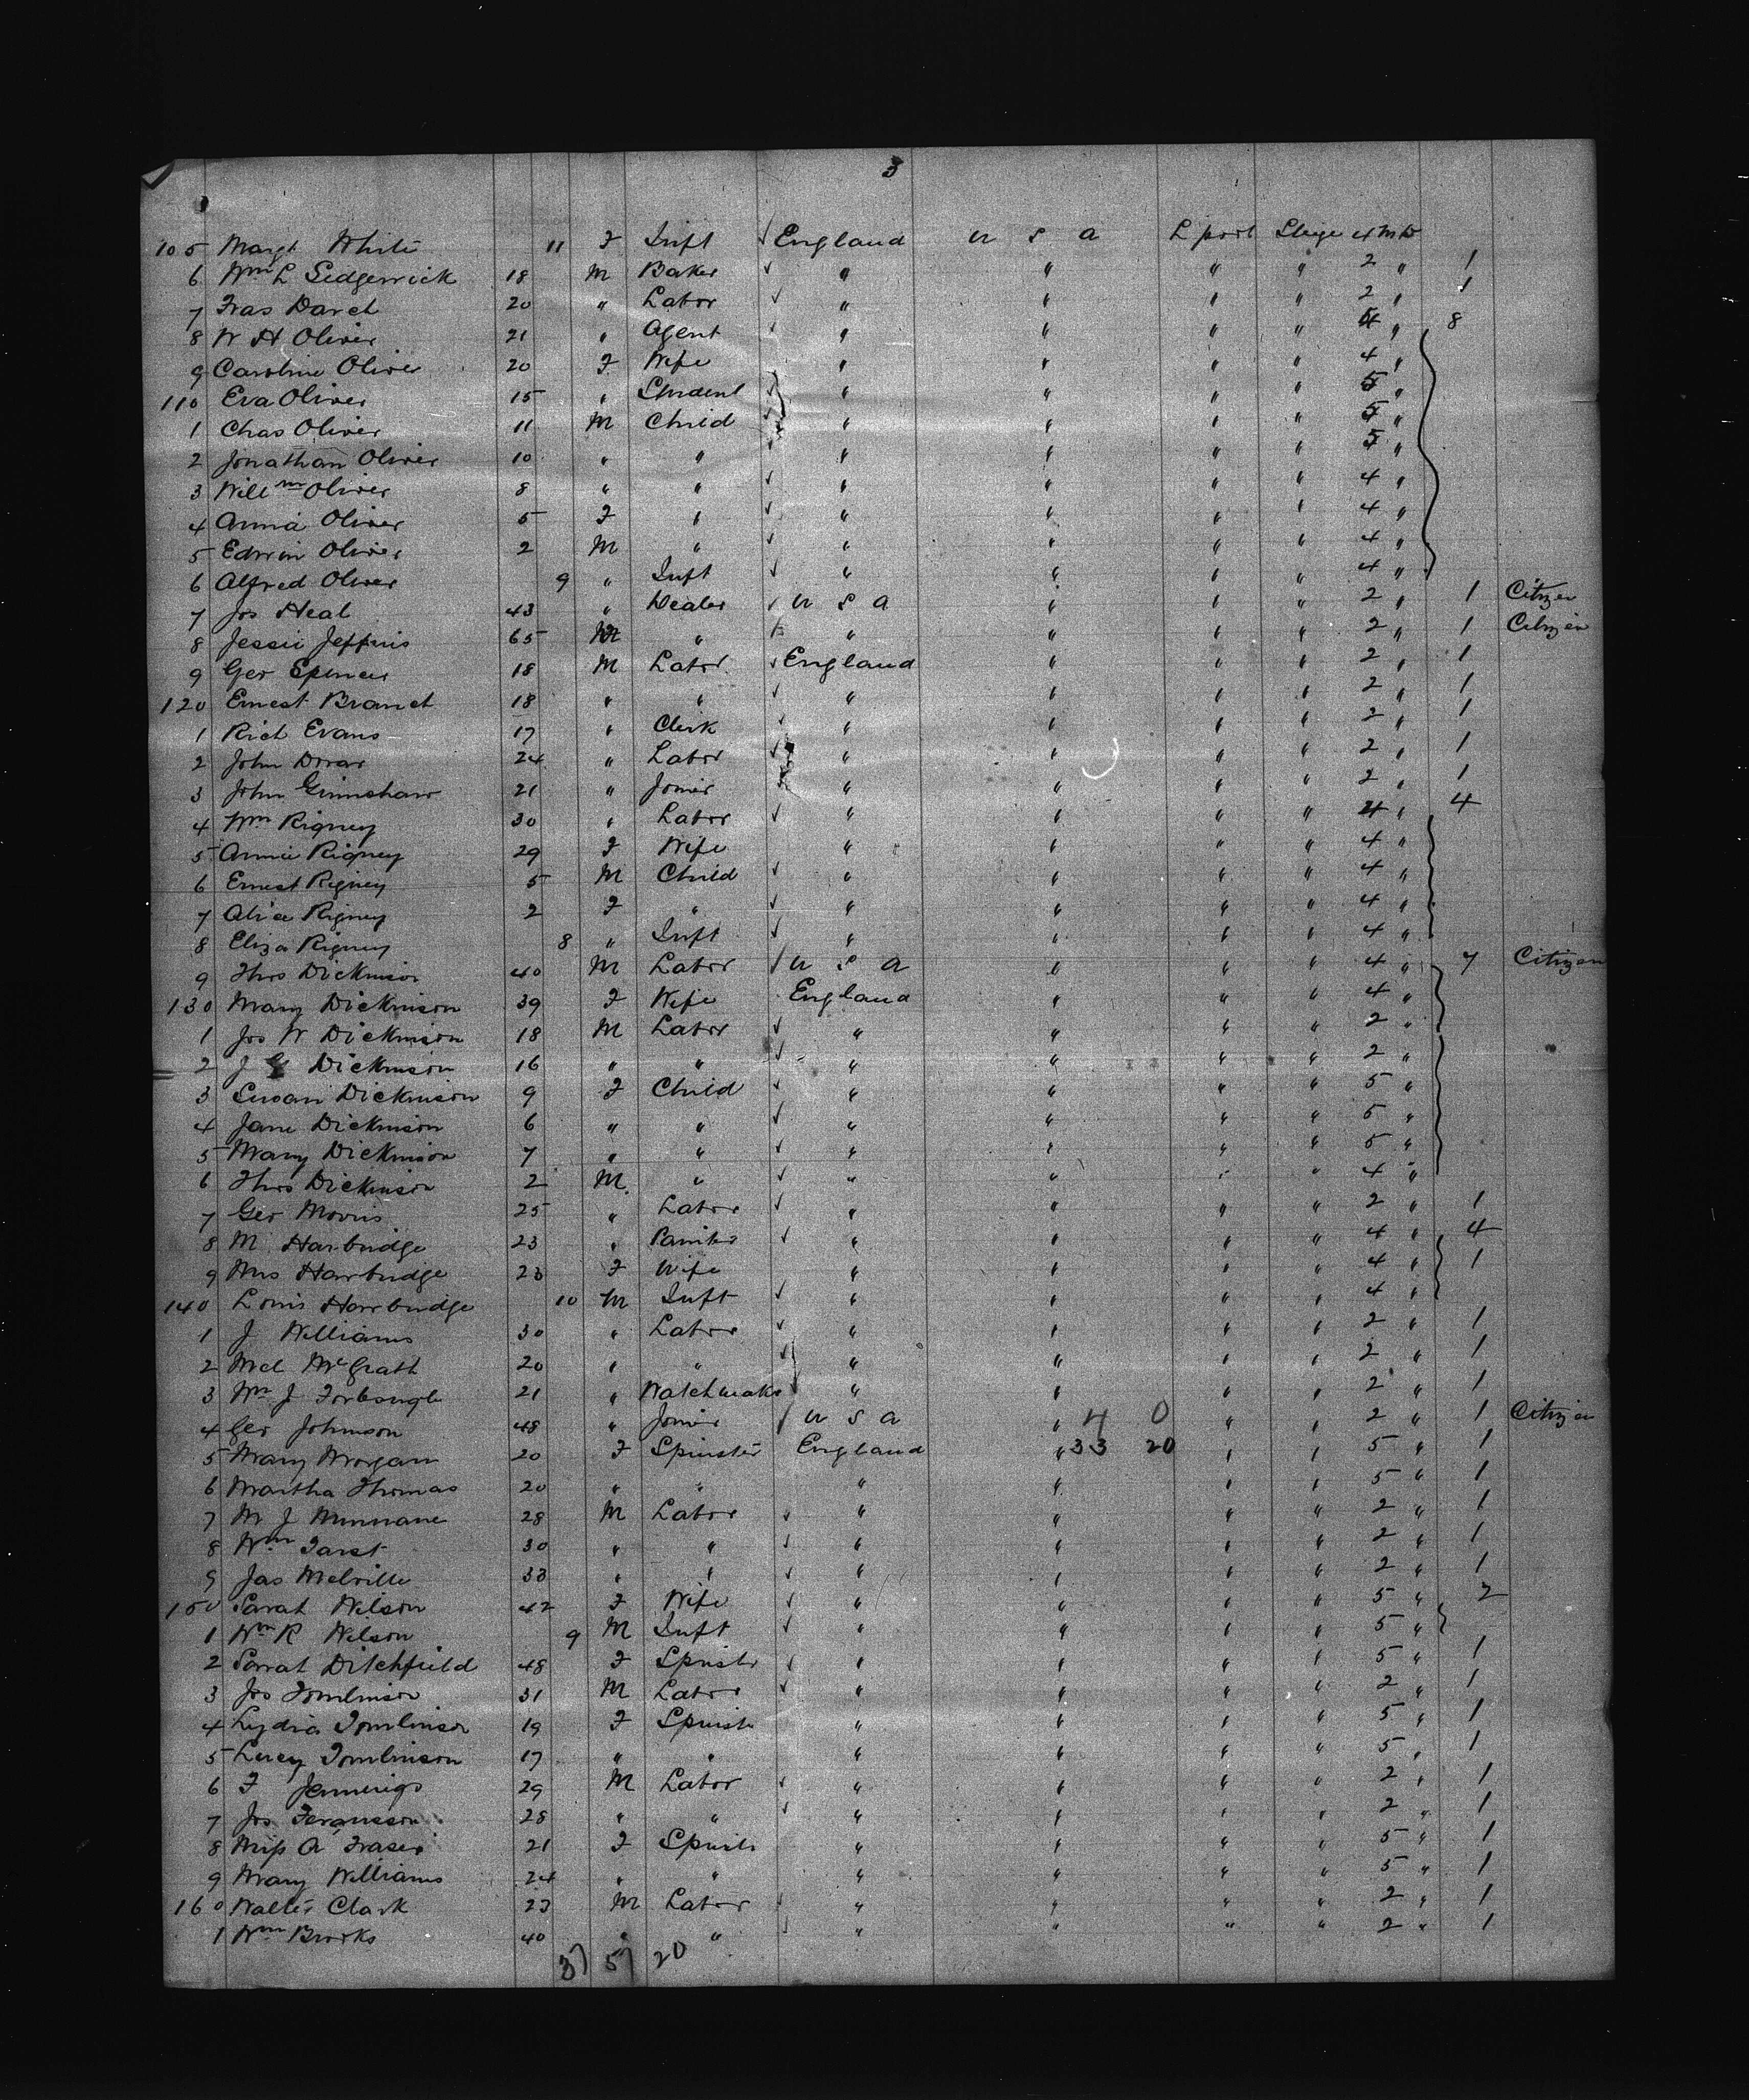 3
105 Margt White 11 F Inft ✓ England U S A L pool Stege 4 Md
6 Wm L Sedgewick 18 M Baker ✓ " " " " 2 " 1
7 Fras Darch 20 " Labor ✓ " " " " 2 " 1
8 W H Oliver 21 " Agent " " " " 4 " 8
9 Caroline Oliver 20 F Wife " " " " 4 "
110 Eva Oliver 15 " Student ✓ " " " " 5 "
1 Chas Oliver 11 M Child ✓ " " " " 5 "
2 Jonathan Oliver 10 " " ✓ " " " " 5 "
3 Willm Oliver 8 " " ✓ " " " " 4 "
4 Annie Oliver 5 F " ✓ " " " " 4 "
5 Edwin Oliver 2 M " ✓ " " " " 4 "
6 Alfred Oliver 9 " Inft ✓ " " " " 4 "
7 Jos Heal 43 " Dealer ✓ U S A " " " 2 " 1 Citizen
8 Jessie Jefferis 65 " " " " " 2 " 1 Citizen
9 Geo Spencer 18 M Labor ✓ England " " " 2 " 1
120 Ernest Branch 18 " " ✓ " " " " 2 " 1
1 Rich Evans 17 " Clerk ✓ " " " " 2 " 1
2 John 24 " Labor ✓ " " " " 2 " 1
3 John Grimshaw 21 " Joiner ✓ " " " " 2 " 1
4 Wm Rigney 30 " Labor ✓ " " " " 4 " 4
5 Annie Rigney 29 F Wife " " " " 4 "
6 Ernest Rigney 5 M Child ✓ " " " " 4 "
7 Alice Rigney 2 F " ✓ " " " " 4 "
8 Eliza Rigney 8 " Inft ✓ " " " " 4 "
9 Thos Dickinson 40 M Labor ✓ U S A " " " 4 " 7 Citizen
130 Mary Dickinson 39 F Wife England " " " 4 "
1 Jos W Dickinson 18 M Labor ✓ " " " " 2 "
2 J G Dickinson 16 " " ✓ " " " " 2 "
3 Susan Dickinson 9 F Child ✓ " " " " 5 "
4 Jane Dickinson 6 " " ✓ " " " " 5 "
5 Mary Dickinson 7 " " ✓ " " " " 5 "
6 Thos Dickinson 2 M " ✓ " " " " 4 "
7 Geo Morris 25 " Labor ✓ " " " " 2 " 1
8 M Harbridge 23 " Painter ✓ " " " " 4 " 4
9 Mrs Harbridge 23 F Wife " " " " 4 " 1
140 Louis Harbridge 10 M Inft ✓ " " " " 4 "
1 J Williams 30 " Labor ✓ " " " " 2 " 1
2 Mcl McGrath 20 " " ✓ " " " " 2 " 1
3 Wm J 21 " Watchmaker " " " " 2 " 1
4 Geo Johnson 48 " Joiner ✓ U S A " 4 0 " " 2 " 1 Citizen
5 Mary Morgan 20 F Spinster England " 33 20 " " 5 " 1
6 Martha Thomas 20 " " " " " " 5 " 1
7 M J Munnane 28 M Labor ✓ " " " " 2 " 1
8 Wm 30 " " ✓ " " " " 2 " 1
9 Jas Melville 33 " " ✓ " " " " 2 " 1
150 Sarah Wilson 42 F Wife ✓ " " " " 5 " 2
1 Wm R Wilson 9 M Inft ✓ " " " " 5 "
2 Sarah Ditchfield 48 F Spinstr ✓ " " " " 5 " 1
3 Jos Tomlinson 31 M Labor ✓ " " " " 2 " 1
4 Lydia Tomlinson 19 F Spinstr " " " " 5 " 1
5 Lucy Tomlinson 17 " " " " " " 5 " 1
6 F Jennings 29 M Labor ✓ " " " " 2 " 1
7 Jos Fergusson 28 " " ✓ " " " " 2 " 1
8 Miss A Fraser 21 F Spinstr " " " " 5 " 1
9 Mary Williams 24 " " " " " " 5 " 1
160 Walter Clark 23 M Labor ✓ " " " " 2 " 1
1 Wm Brooks 40 " " ✓ " " " " 2 " 1
37 57 20